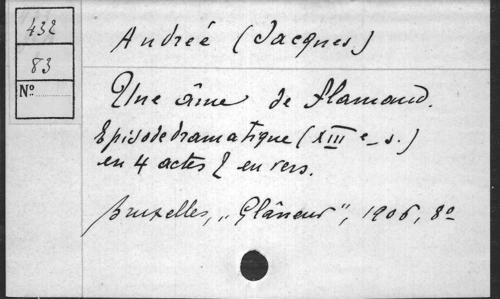 432
83
No
Andréé (Jacques)
Une âme de Flamand.
Episode dramatique (XIIIe s.)
en 4 actes & en vers.
Bruxelles, „Glâneur", 1906, 8o